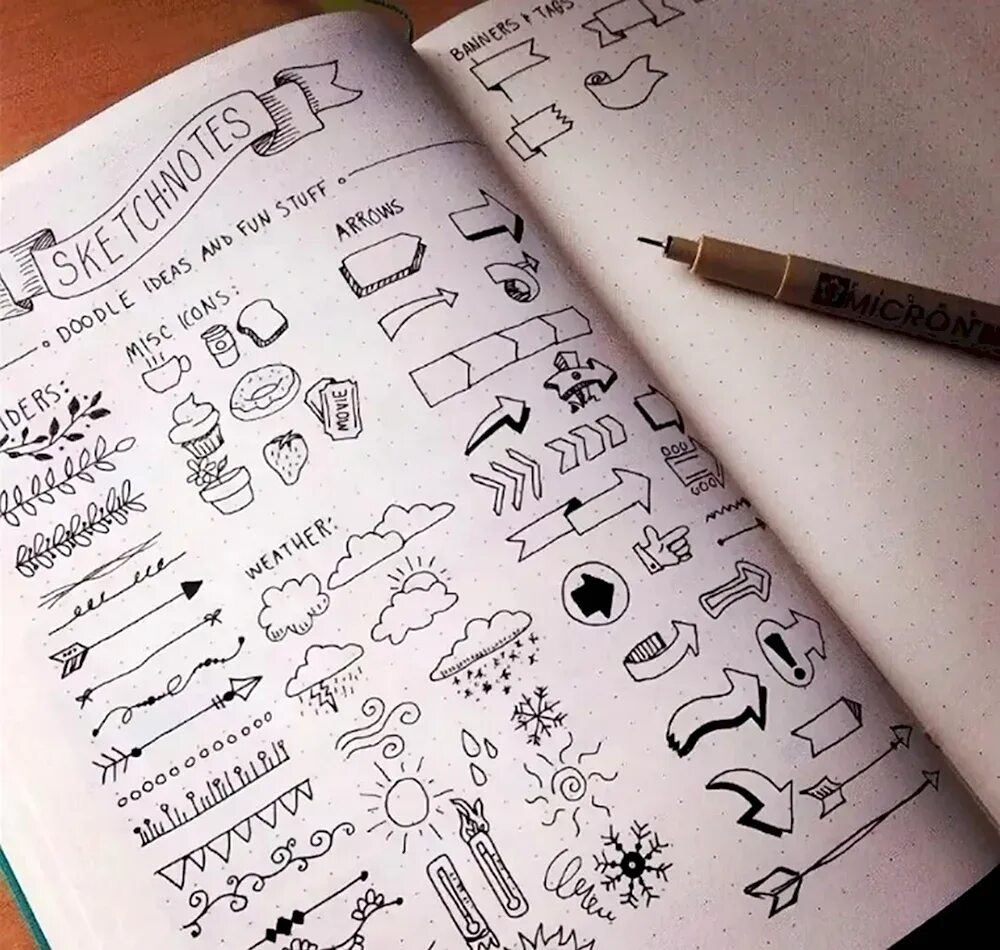 SKETCH·NOTES
DOODLE IDEAS AND FUN STUFF
IDERS:
MISC ICONS:
MOVIE
WEATHER:
ARROWS
BANNERS & TAGS
MICRON